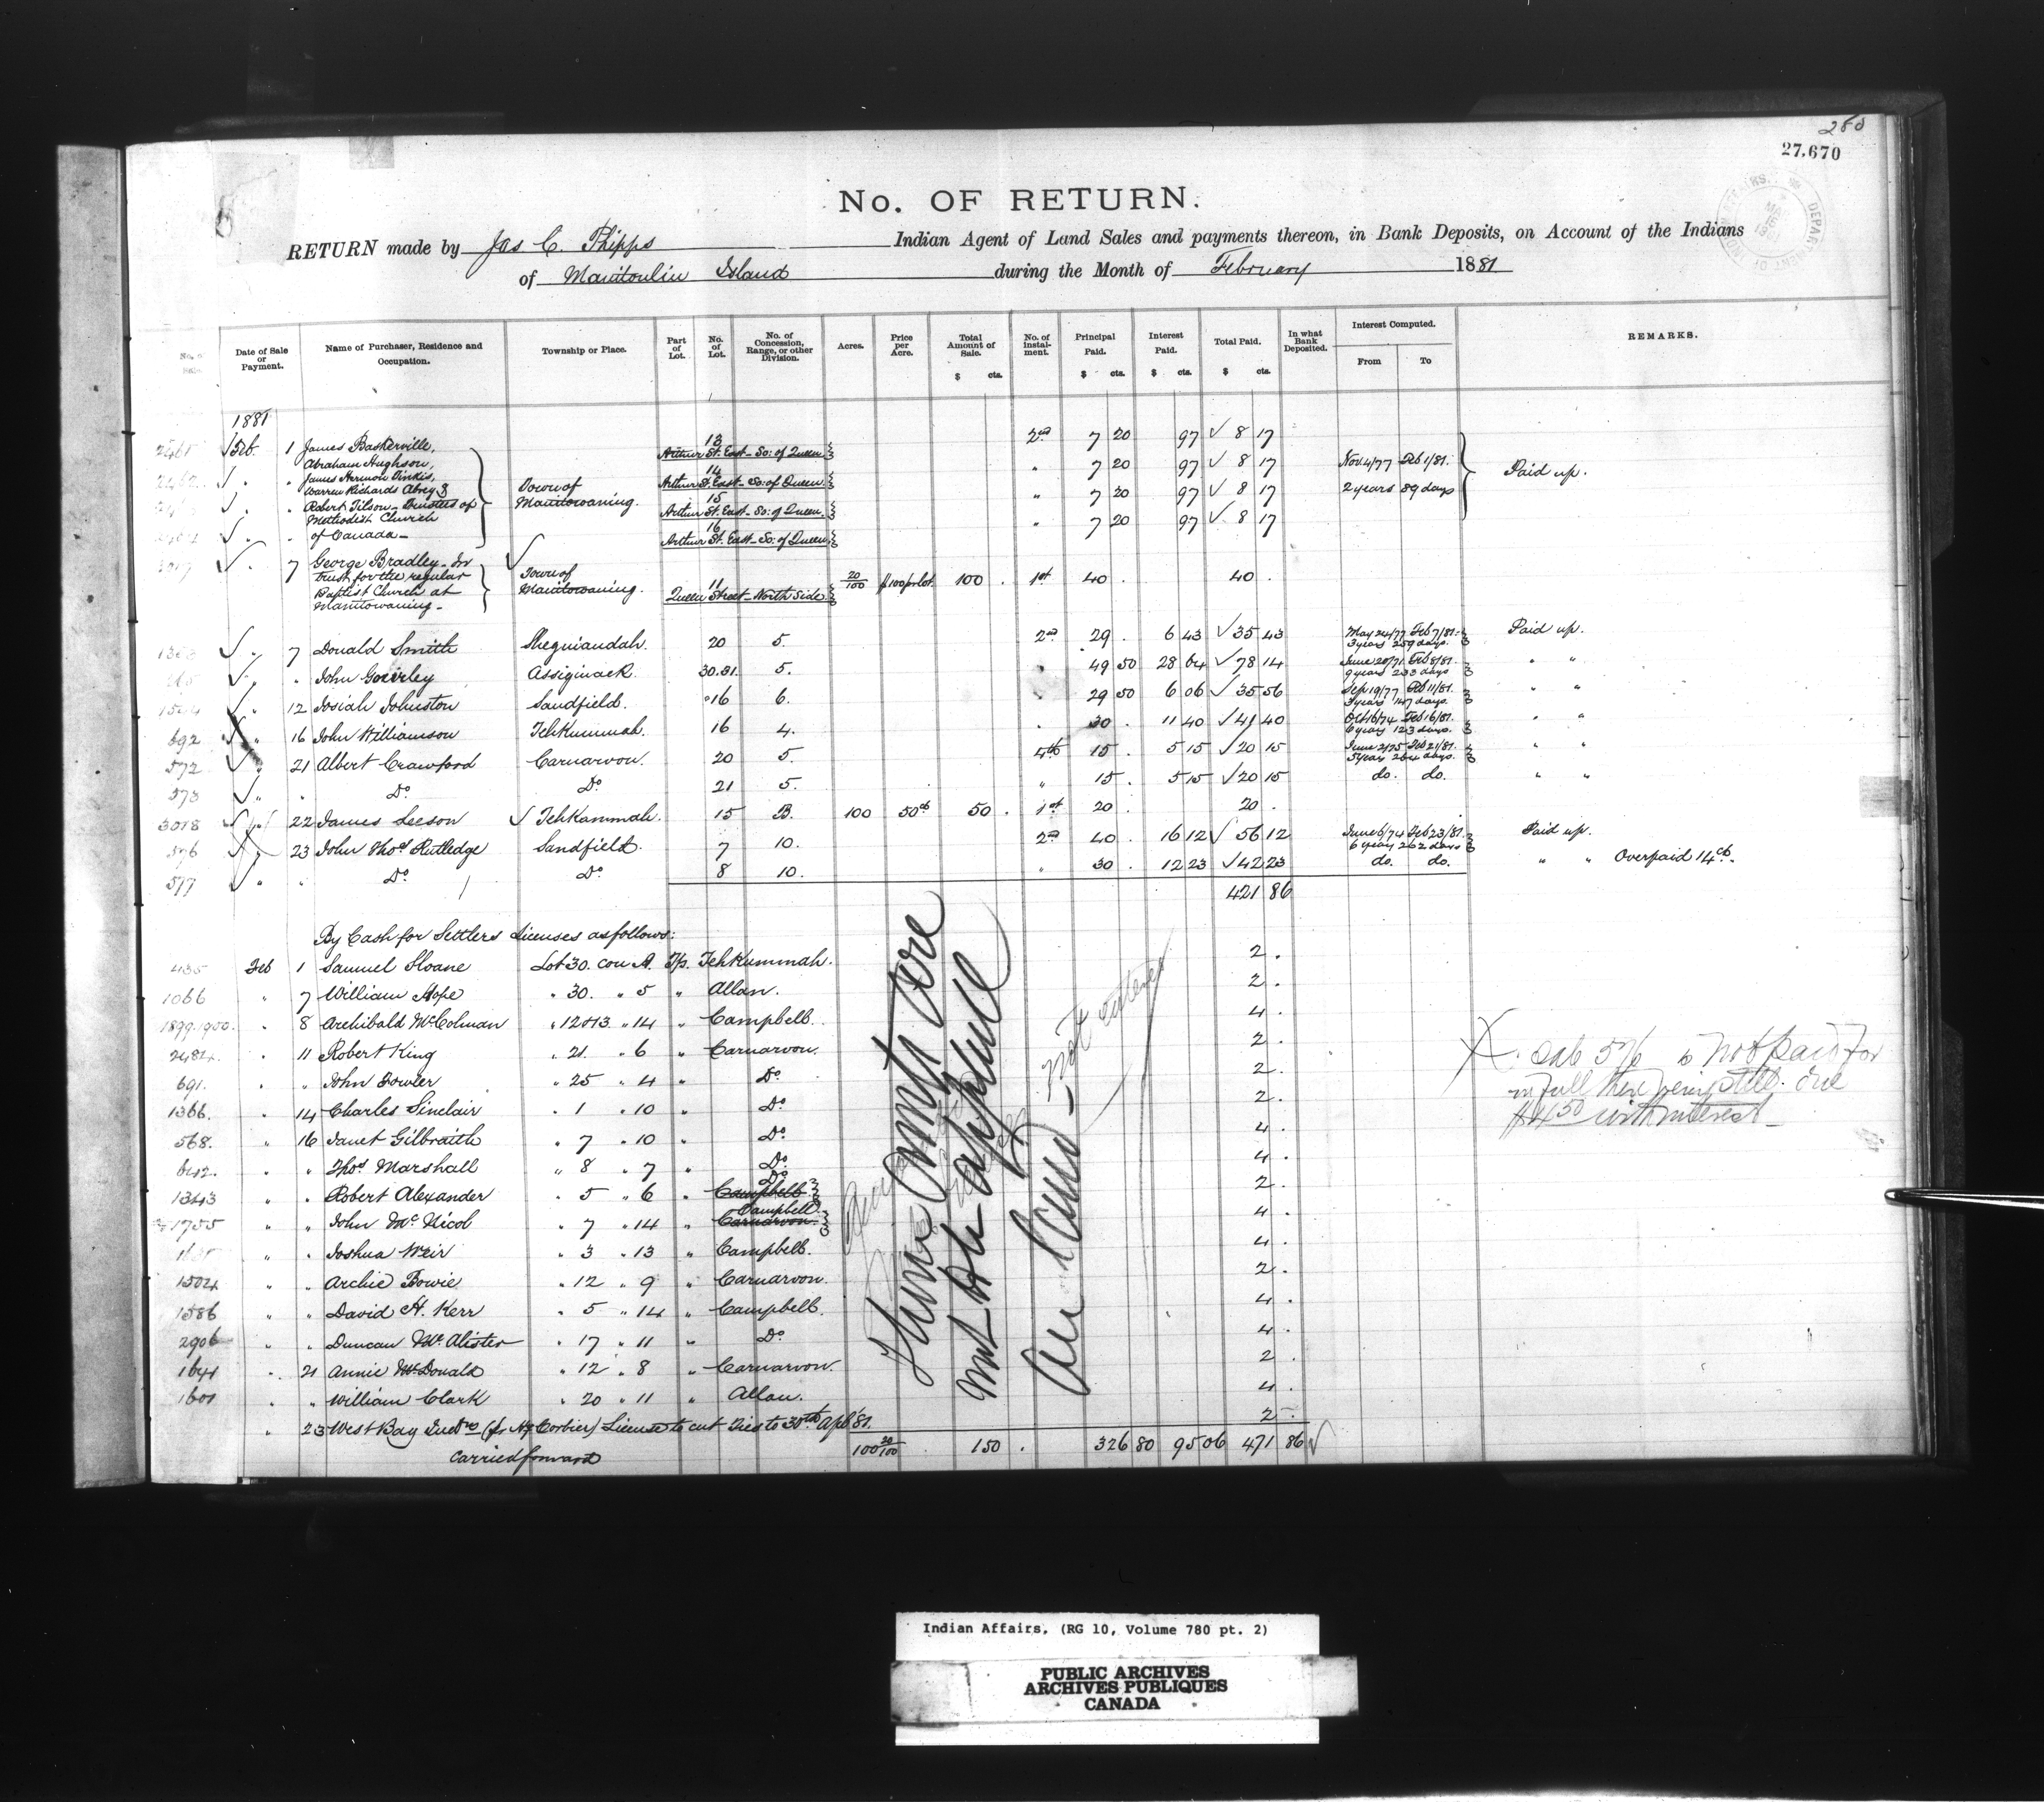 280
27,670
No. OF RETURN.
RETURN made by Jas C. Phipps Indian Agent of Land Sales and payments thereon, in Bank Deposits, on Account of the Indians
of Manitoulin Island during the Month of February 1881
Date of Sale or Payment. Name of Purchaser, Residence and Occupation. Township or Place. Part of Lot. No. of Lot. No. of Concession, Range, or other Division. Acres. Price per Acre. Total Amount of Sale. $ cts. No. of instal-ment. Principal Paid. $ cts. Interest Paid. $ cts. Total Paid. $ cts. In what Bank Deposited. Interest Computed. From To REMARKS.
1881
Feb. 1 James Baskerville, 13 2nd 7 20 97 ✓ 8 17
Abraham Hughson, Arthur St. East - So: of Queen
James Harmon Vinkis, 14 " 7 20 97 ✓ 8 17 Nov. 4/77 Feb 1/81. Paid up.
Warren Richards Abrey & Town of Arthur St. East - So: of Queen
Robert Tilson - Trustees of Manitowaning. 15 " 7 20 97 ✓ 8 17 2 years 89 days
Methodist Church Arthur St. East - So: of Queen.
of Canada - 16 " 7 20 97 ✓ 8 17
Arthur St. East - So: of Queen
3017 ✓ " 7 George Bradley - In
trust for the regular Town of 11 20/100 $100 pr lot 100 . 1st 40 . 40 .
Baptist Church at Manitowaning. Queen Street - North Side
Manitowaning -
✓ " 7 Donald Smith Sheguiandah. 20 5. 2nd 29 . 6 43 ✓ 35 43 May 24/77 Feb 7/81. 3 years 259 days. Paid up.
✓ " " John Gourley Assiginack. 30.31. 5. " 49 50 28 64 ✓ 78 14 June 20/71 Feb 8/81. 9 years 233 days " "
✓ " 12 Josiah Johnston Sandfield. 16 6. " 29 50 6 06 ✓ 35 56 Sep 19/77 Feb 11/81. 3 years 147 days. " "
692 " 16 John Williamson Tehkummah. 16 4. " 30 . 11 40 ✓ 41 40 Oct 16/74 Feb 16/81. 6 years 123 days. " "
572 ✓ " 21 Albert Crawford Carnarvon. 20 5. 4th 15 . 5 15 ✓ 20 15 June 2/75 Feb 21/81. 5 years 264 days. " "
573 ✓ " " Do Do 21 5. " 15 . 5 15 ✓ 20 15 do. do. " "
3018 ✓ " 22 James Leeson ✓ Tehkammah. 15 B. 100 50cts 50 . 1st 20 . 20 .
576 " 23 John Thos Rutledge Sandfield. 7 10. 2nd 40 . 16 12 ✓ 56 12 June 6/74 Feb 23/81. 6 years 262 days Paid up.
577 ✓ " " Do Do 8 10. " 30 . 12 23 ✓ 42 23 do. do. " " Overpaid 14cts.
421 86
By Cash for Settlers Licenses as follows:
435 Feb 1 Samuel Sloane Lot 30. con A. Tp. Tehkummah. 2 .
1066 " 7 William Hope " 30. " 5 " Allan. 2 .
1899.1900. " 8 Archibald McColman " 12 & 13 " 14 " Campbell. 4 .
2484. " 11 Robert King " 21. " 6 " Carnarvon. 2 .
691. " " John Fowler " 25 " 4 " Do 2 .
1366. " 14 Charles Sinclair " 1 " 10 " Do 2 .
568. " 16 Janet Gilbraith " 7 " 10 " Do 4 .
642. " " Thos Marshall " 8 " 7 " Do 4 .
1343 " " Robert Alexander " 5 " 6 " Do Campbell 2 .
1755 " " John McNicol " 7 " 14 " Campbell Carnarvon 4 .
" " Joshua Weir " 3 " 13 " Campbell. 4 .
1504 " " Archie Bowie " 12 " 9 " Carnarvon. 2 .
1586 " " David H. Kerr " 5 " 14 " Campbell. 4 .
2906 " " Duncan McAlister " 17 " 11 " Do 4 .
1641 " 21 Annie McDonald " 12 " 8 " Carnarvon. 2 .
1601 " " William Clark " 20 " 11 " Allan. 4 .
" 23 West Bay Indns (pr Corbier) License to cut Ties to 30th Apl '81. 2 -
Carried forward 100 20/100 150 . 326 80 95 06 471 86 ✓
These Amts are
not to be applied
on land - not entered
X. Sale 576 is not paid for
in full there being still due
$4.50 with interest -
Indian Affairs. (RG 10, Volume 780 pt. 2)
PUBLIC ARCHIVES
ARCHIVES PUBLIQUES
CANADA